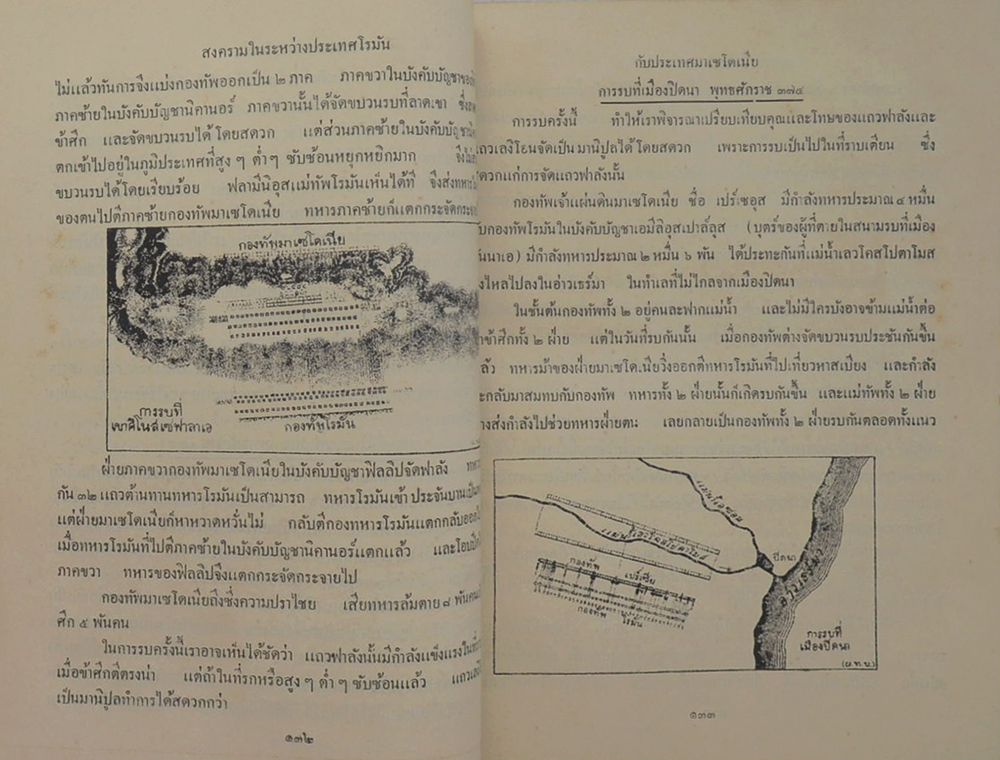 สงครามในระหว่างประเทศโรมัน
ไม่แล้วทันการจึงแบ่งกองทัพออกเป็น ๒ ภาค ภาคขวาในบังคับบัญชาของ
ภาคซ้ายในบังคับบัญชานิคานอร์ ภาคขวานั้นได้จัดขบวนรบที่ลาดเขา ซึ่ง
ข้าศึก และจัดขบวนรบได้โดยสดวก แต่ส่วนภาคซ้ายในบังคับบัญชานิ
ตกเข้าไปอยู่ในภูมิประเทศที่สูง ๆ ต่ำ ๆ ซับซ้อนหยุกหยิกมาก จึงไม่
ขบวนรบได้โดยเรียบร้อย ฟลามีนิอุสแม่ทัพโรมันเห็นได้ที จึงส่งทหาร
ของตนไปตีภาคซ้ายกองทัพมาเซโดเนีย ทหารภาคซ้ายก็แตกกระจัดกระจา
กองทัพมาเซโดเนีย
การรบที่
เขาศิโนส์เซฟาลาเอ
กองทัพโรมัน
ฝ่ายภาคขวากองทัพมาเซโดเนียในบังคับบัญชาฟิลลิปจัดฟาลัง
กัน ๓๒ แถวต้านทานทหารโรมันเป็นสามารถ ทหารโรมันเข้าประจันบานเป็น
แต่ฝ่ายมาเซโดเนียก็หาหวาดหวั่นไม่ กลับตีกองทหารโรมันแตกกลับออกไ
เมื่อทหารโรมันที่ไปตีภาคซ้ายในบังคับบัญชานิคานอร์แตกแล้ว และโอบ
ภาคขวา ทหารของฟิลลิปจึงแตกกระจัดกระจายไป
กองทัพมาเซโดเนียถึงซึ่งความปราไชย เสียทหารล้มตาย ๘ พันคน
ศึก ๕ พันคน
ในการรบครั้งนี้เราอาจเห็นได้ชัดว่า แถวฟาลังนั้นมีกำลังแข็งแรงในที่
เมื่อข้าศึกตีตรงน่า แต่ถ้าในที่รกหรือสูง ๆ ต่ำ ๆ ซับซ้อนแล้ว แถว
เป็นมานิปูลทำการได้สดวกกว่า
๑๓๒
กับประเทศมาเซโดเนีย
การรบที่เมืองปิดนา พุทธศักราช ๓๗๕
การรบครั้งนี้ ทำให้เราพิจารณาเปรียบเทียบคุณและโทษของแถวฟาลังและ
แถวเลงิโอนจัดเป็นมานิปูลได้โดยสดวก เพราะการรบเป็นไปในที่ราบเตียน ซึ่ง
สดวกแก่การจัดแถวฟาลังนั้น
กองทัพเจ้าแผ่นดินมาเซโดเนีย ชื่อ เปร์เซอุส มีกำลังทหารประมาณ ๔ หมื่น
กับกองทัพโรมันในบังคับบัญชาเอมีลิอุสเปาล์ลุส (บุตร์ของผู้ที่ตายในสนามรบที่เมือง
นนาเอ) มีกำลังทหารประมาณ ๒ หมื่น ๖ พัน ได้ประทะกันที่แม่น้ำเลวโคสโปตาโมส
งไหลไปลงในอ่าวเธร์มา ในทำเลที่ไม่ไกลจากเมืองปิดนา
ในชั้นต้นกองทัพทั้ง ๒ อยู่คนละฟากแม่น้ำ และไม่มีใครบังอาจข้ามแม่น้ำต่อ
น่าข้าศึกทั้ง ๒ ฝ่าย แต่ในวันที่รบกันนั้น เมื่อกองทัพต่างจัดขบวนรบประชันกันขึ้น
ล้ว ทหารม้าของฝ่ายมาเซโดเนียวิ่งออกตีทหารโรมันที่ไปเที่ยวหาสเบียง และกำลัง
จะกลับมาสมทบกับกองทัพ ทหารทั้ง ๒ ฝ่ายนั้นก็เกิดรบกันขึ้น และแม่ทัพทั้ง ๒ ฝ่าย
างส่งกำลังไปช่วยทหารฝ่ายตน เลยกลายเป็นกองทัพทั้ง ๒ ฝ่ายรบกันตลอดทั้งแนว
ปิดนา
อ่าวเธร์มา
กองทัพ เปร์เซีย
กองทัพ โรมัน
การรบที่
เมืองปิดนา
(ผ.ท.บ.)
๑๓๓